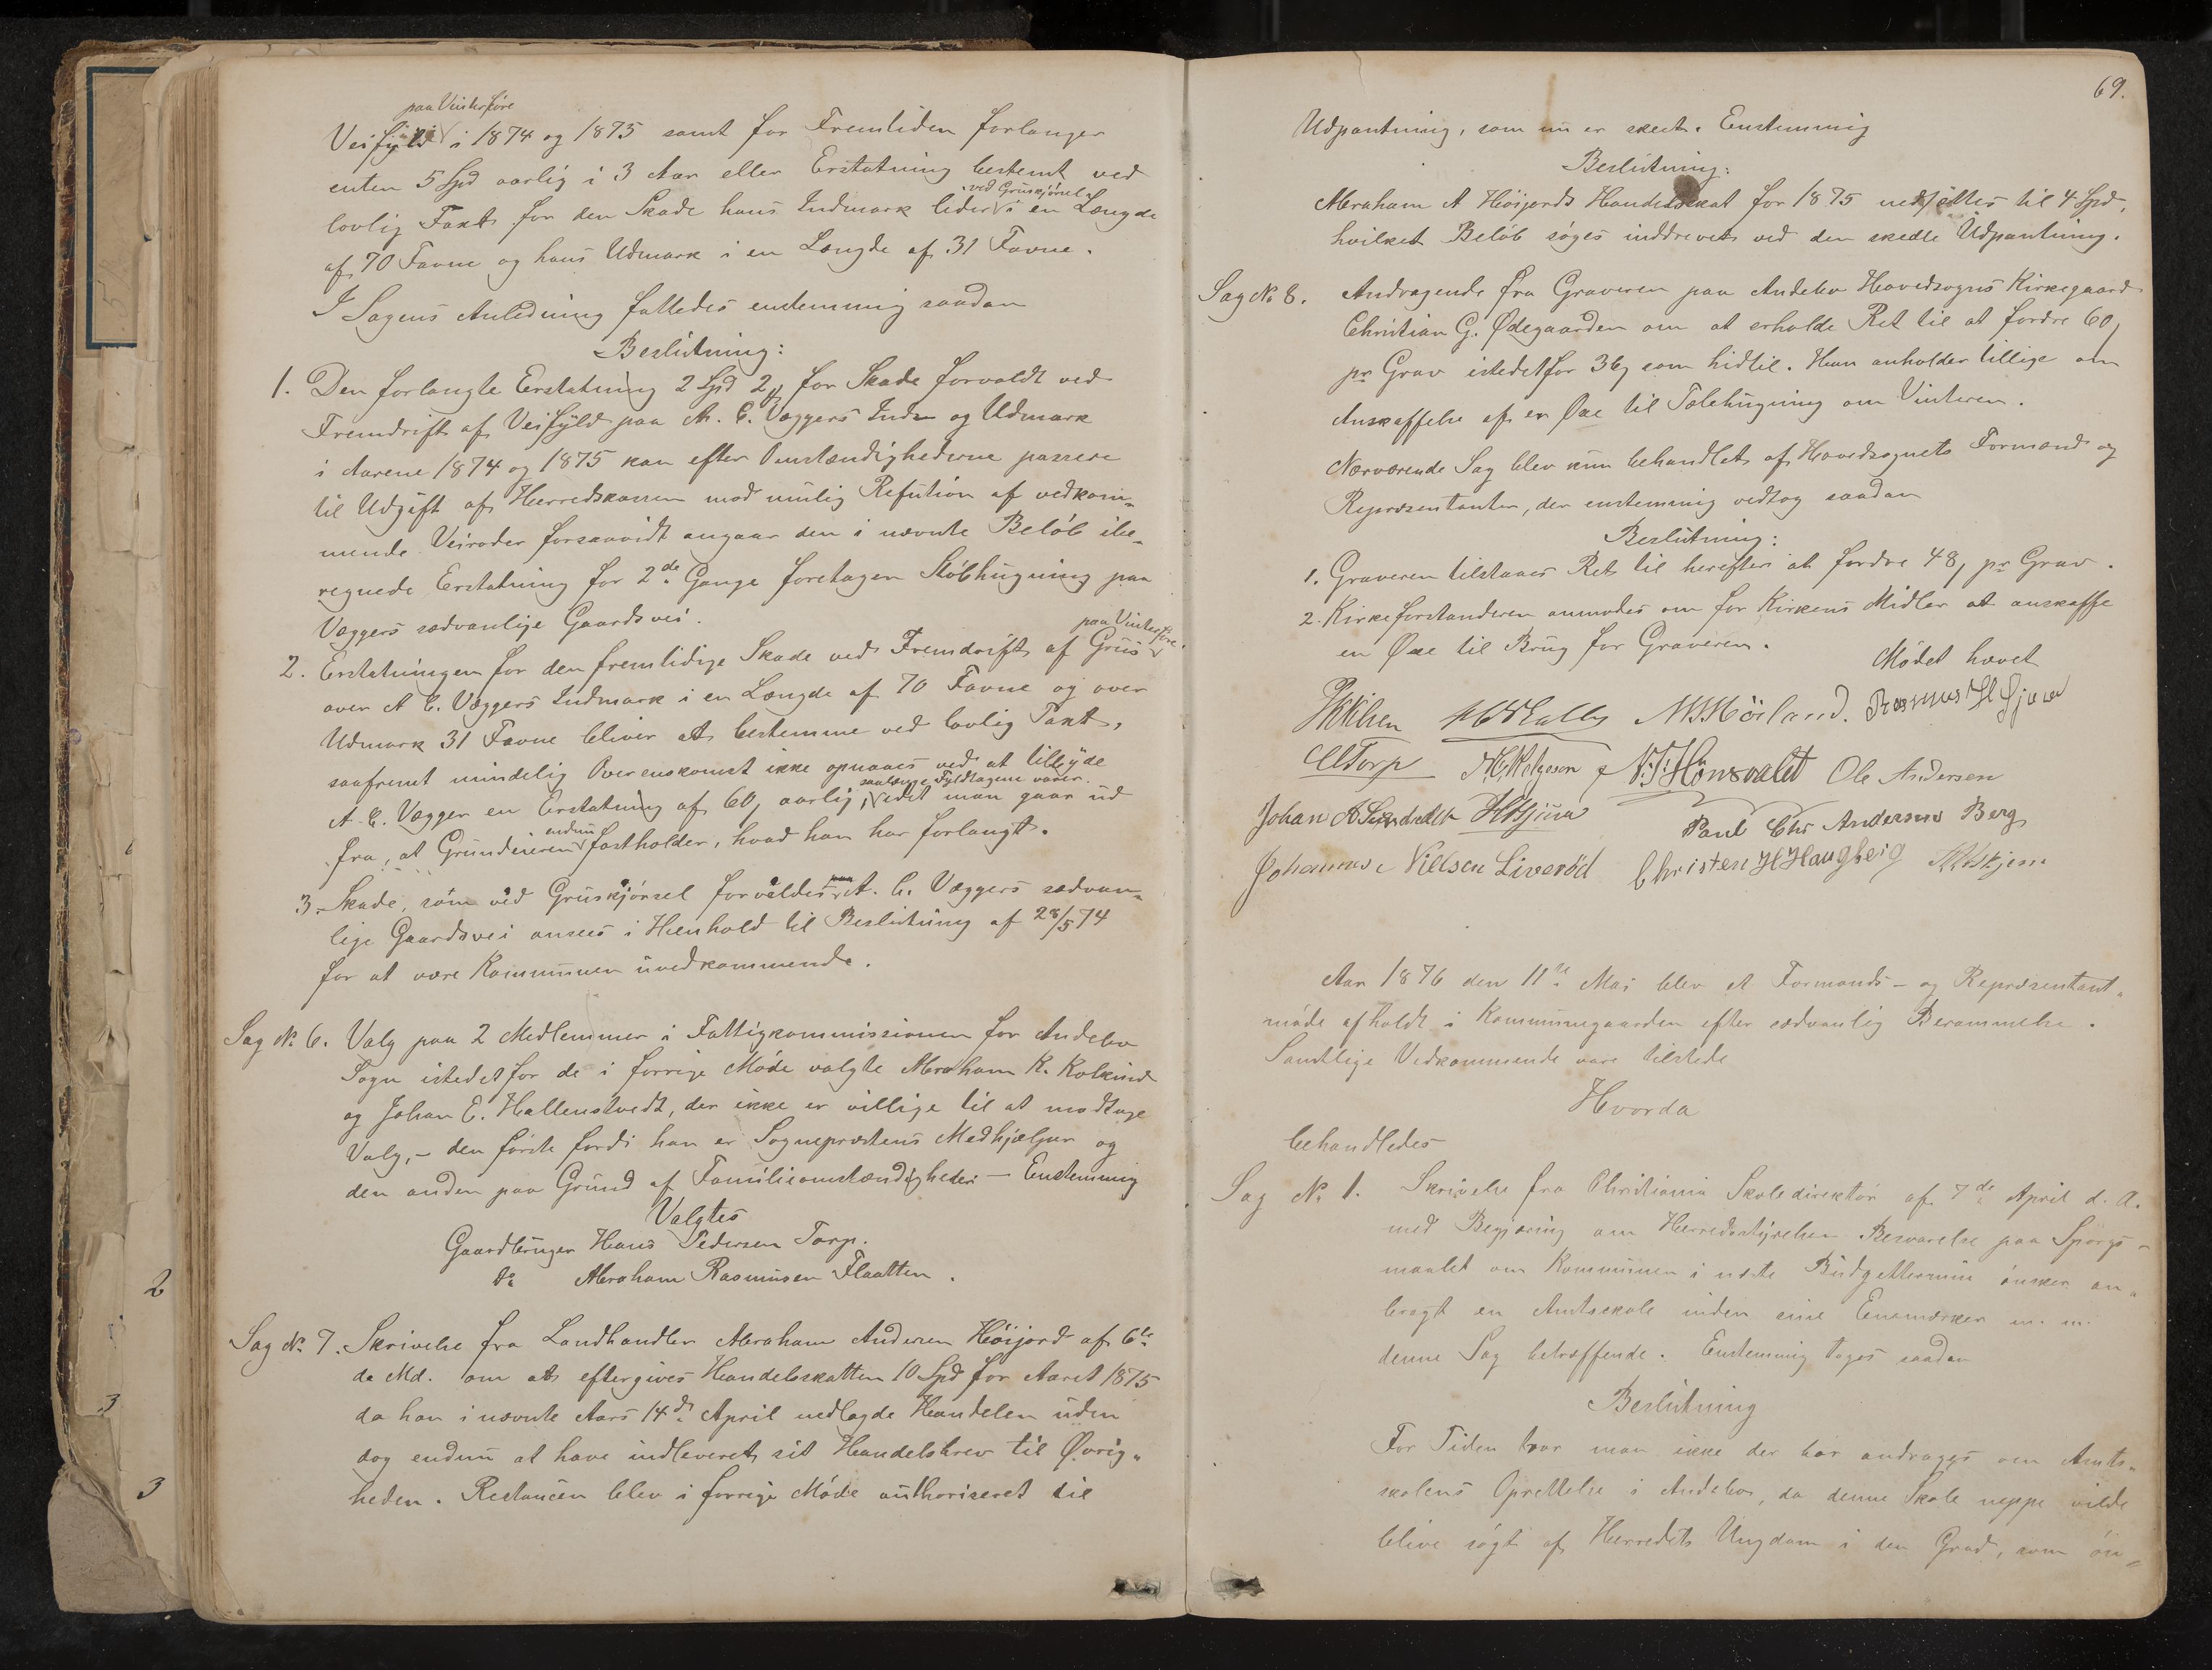 paa Vinterføre
Veifyld i 1874 og 1875 samt for Fremtiden forlanger
enten 5 Spd aarlig i 3 Aar eller Erstatning bestemt ved
ved Gruskjørsel
lovlig Taxt for den Skade hans Indmark lider i en Længde
af 70 Favne og hans Udmark i en Længde af 31 Favne.
I Sagens Anledning fattedes enstemmig saadan
Beslutning:
1. Den forlangte Erstatning 2 Spd 2 for Skade forvoldt ved
Fremdrift af Veifyld paa A. C. Væggers Ind- og Udmark
i Aarene 1874 og 1875 kan efter Omstændighederne passere
til Udgift af Herredskassen mod mulig Refution af vedkom-
mende Veiroder forsaavidt angaar den i nævnte Beløb ibe-
regnede Erstatning for 2de Gange foretagen Støbhugning paa
Væggers sædvanlige Gaardsvei.
paa Vinterføre.
2. Erstatningen for den fremtidige Skade ved Fremdrift af Grus
over A C. Væggers Indmark i en Længde af 70 Favne og over
Udmark 31 Favne bliver at bestemme ved lovlig Taxt,
saafremt mindelig Overenskomst ikke opnaaes ved at tilbyde
saalænge Fyldtagene varer.
A. C. Vægger en Erstatning af 60 aarlig, idet man gaar ud
endnu
fra, at Grundeieren fastholder, hvad han har forlangt.
3. Skade, som ved Gruskjørsel forvoldes paa A. C. Væggers sædvan-
lige Gaardsvei ansees i Henhold til Beslutning af 28/5 74
for at være Kommunen uvedkommende.
Sag No 6. Valg paa 2 Medlemmer i Fattigkommissionen for Andebu
Sogn istedetfor de i forrige Møde valgte Abraham K. Kolkind
og Johan E. Hallenstvedt, der ikke er villige til at modtage
Valg, - den første fordi han er Sogneprestens Medhjælper og
den anden paa Grund af Familieomstændigheder - Enstemmig
Valgtes
Gaardbruger Hans Pedersen Torp.
do Abraham Rasmusen Flaatten.
Sag No 7. Skrivelse fra Landhandler Abraham Andersen Høijord af 6te
ds Md. om at eftergives Handelsskatten 10 Spd for Aaret 1875
da han i nævnte Aars 14de April nedlagde Handelen uden
dog endnu at have indleveret sit Handelsbrev til Øvrig-
heden. Restancen blev i forrige Møde authoriseret til
69.
Udpantning, som nu er skeet. Enstemmig
Beslutning:
Abraham A Høijords Handelsskat for 1875 nedsættes til 4 Spd,
hvilket Beløb søges inddrevet ved den skedte Udpantning.
Sag No 8. Andragende fra Graveren paa Andebu Hovedsogns Kirkegaard
Christian G. Ødegaarden om at erholde Ret til at fordre 60
pr Grav istedetfor 36 som hidtil. Han anholder tillige om
Anskaffelse af en Øxe til Tælehugning om Vinteren.
Nærværende Sag blev kun behandlet af Hovedsognets Formænd og
Repræsentanter, der enstemmig vedtog saadan
Beslutning:
1. Graveren tilstaaes Ret til herefter at fordre 48 pr Grav.
2. Kirkeforstanderen anmodes om for Kirkens Midler at anskaffe
en Øxe til Brug for Graveren.
Mødet hævet
N Mørland. Rasmus H Gjære
Torp H. Helgeson N. T. Hønsvaldt Ole Andersen
Johan A
Paul Chr Andersen Berg
Johannes Nielsen Liverød Christen H Haugberg
Aar 1876 den 11te Mai blev et Formands- og Repræsentant-
møde afholdt i Kommunegaarden efter sædvanlig Berammelse.
Samtlige Vedkommende vare tilstede
Hvorda
behandledes
Sag No 1. Skrivelse fra Christiania Skoledirektør af 7de April d. A.
med Begjæring om Herredsstyrelsen Besvarelse paa Spørgs-
maalet om Kommunen i næste Budgettermin ønsker an-
bragt en Amtsskole inden sine Enemærker m. m.
denne Sag betræffende. Enstemmig toges saadan
Beslutning
For Tiden tror man ikke der bør andrages om Amts-
skolens Oprettelse i Andebu, da denne Skole neppe vilde
blive søgt af Herredets Ungdom i den Grad, som øn-
2
3
3